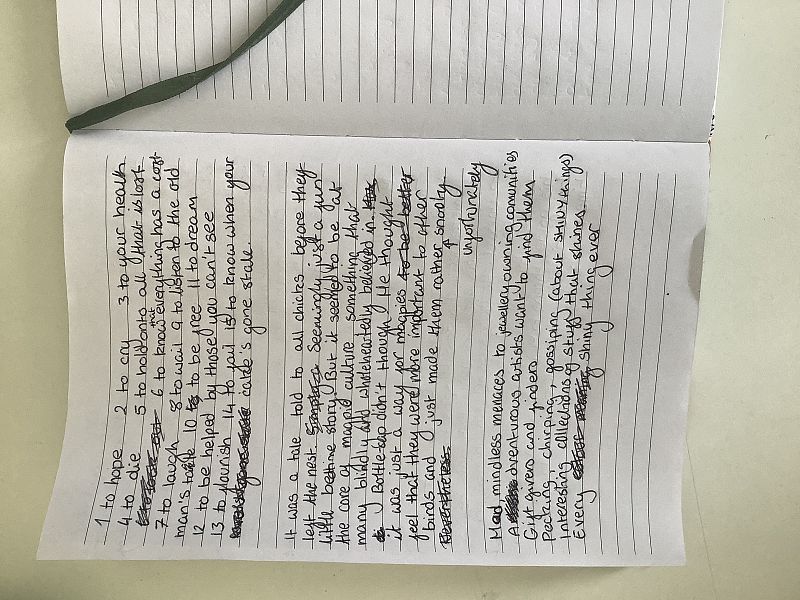 1 to hope 2 to cry 3 to your health
4 to die 5 to hold onto all that is lost
6 to know that everything has a cost
7 to laugh 8 to wail 9 to listen to the old
man's tale 10 to be free 11 to dream
12 to be helped by those you can't see
13 to flourish 14 to fail 15 to know when your
cake's gone stale.
It was a tale told to all chicks before they
left the nest. Seemingly just a fun
little bedtime story. But it seemed to be at
the core of magpie culture something that
many blindly and wholeheartedly believed in.
Bottle-cap didn't though. He thought
it was just a way for magpies to feel better
feel that they were more important to other
birds and just made them rather snooty
unfortunately
Nevertheless
Mad mindless menaces to jewellery owning comunities
Adventurous artists want to find them
Gift givers and finders
Pecking, chirping, gossiping (about SHINY things)
Interesting collections of stuff that shines
Every shiny thing ever